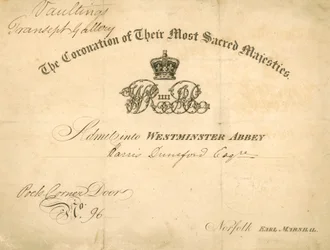 Vaultings
Transept Gallery
The Coronation of Their Most Sacred Majesties.
WR IIII
Admit into WESTMINSTER ABBEY
Harris Dunsford Esqre
Poets Corner Door
No. 96
Norfolk EARL MARSHAL.